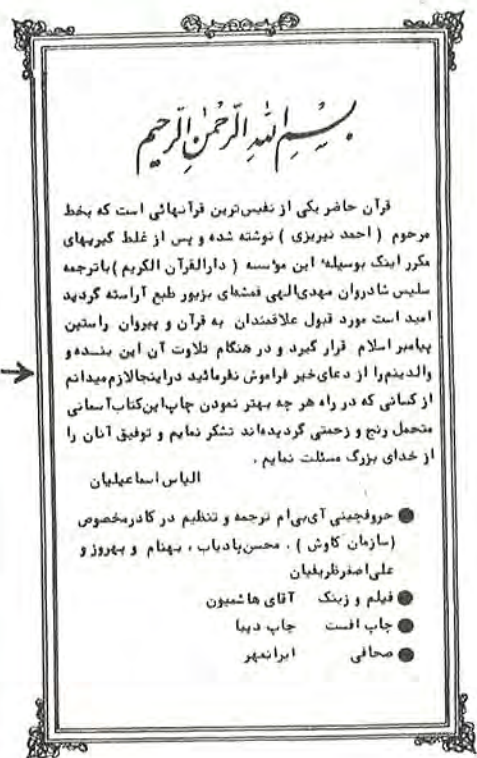 بِسْمِ اللهِ الرَّحْمٰنِ الرَّحیم
قرآن حاضر یکی از نفیس‌ترین قرآنهائی است که بخط
مرحوم ( احمد نیریزی ) نوشته شده و پس از غلط گیریهای
مکرر اینک بوسیلهٔ این مؤسسه ( دارالقرآن الکریم ) باترجمه
سلیس شادروان مهدی‌الهی قمشه‌ای بزیور طبع آراسته گردید
امید است مورد قبول علاقمندان به قرآن و پیروان راستین
پیامبر اسلام قرار گیرد و در هنگام تلاوت آن این بنده و
والدینم‌را از دعای‌خیر فراموش نفرمائید دراینجالازم‌میدانم
از کسانی که در راه هر چه بهتر نمودن چاپ‌این‌کتاب‌آسمانی
متحمل رنج و زحمتی گردیده‌اند تشکر نمایم و توفیق آنان را
از خدای بزرگ مسئلت نمایم .
الیاس اسماعیلیان
● حروفچینی آی‌بی‌ام ترجمه و تنظیم در کادرمخصوص
(سازمان کاوش ) . محسن‌پادیاب ، بهنام و بهروز و
علی‌اصغرظریفیان
● فیلم و زینک آقای هاشمیون
● چاپ افست چاپ دیبا
● صحافی ایرانمهر